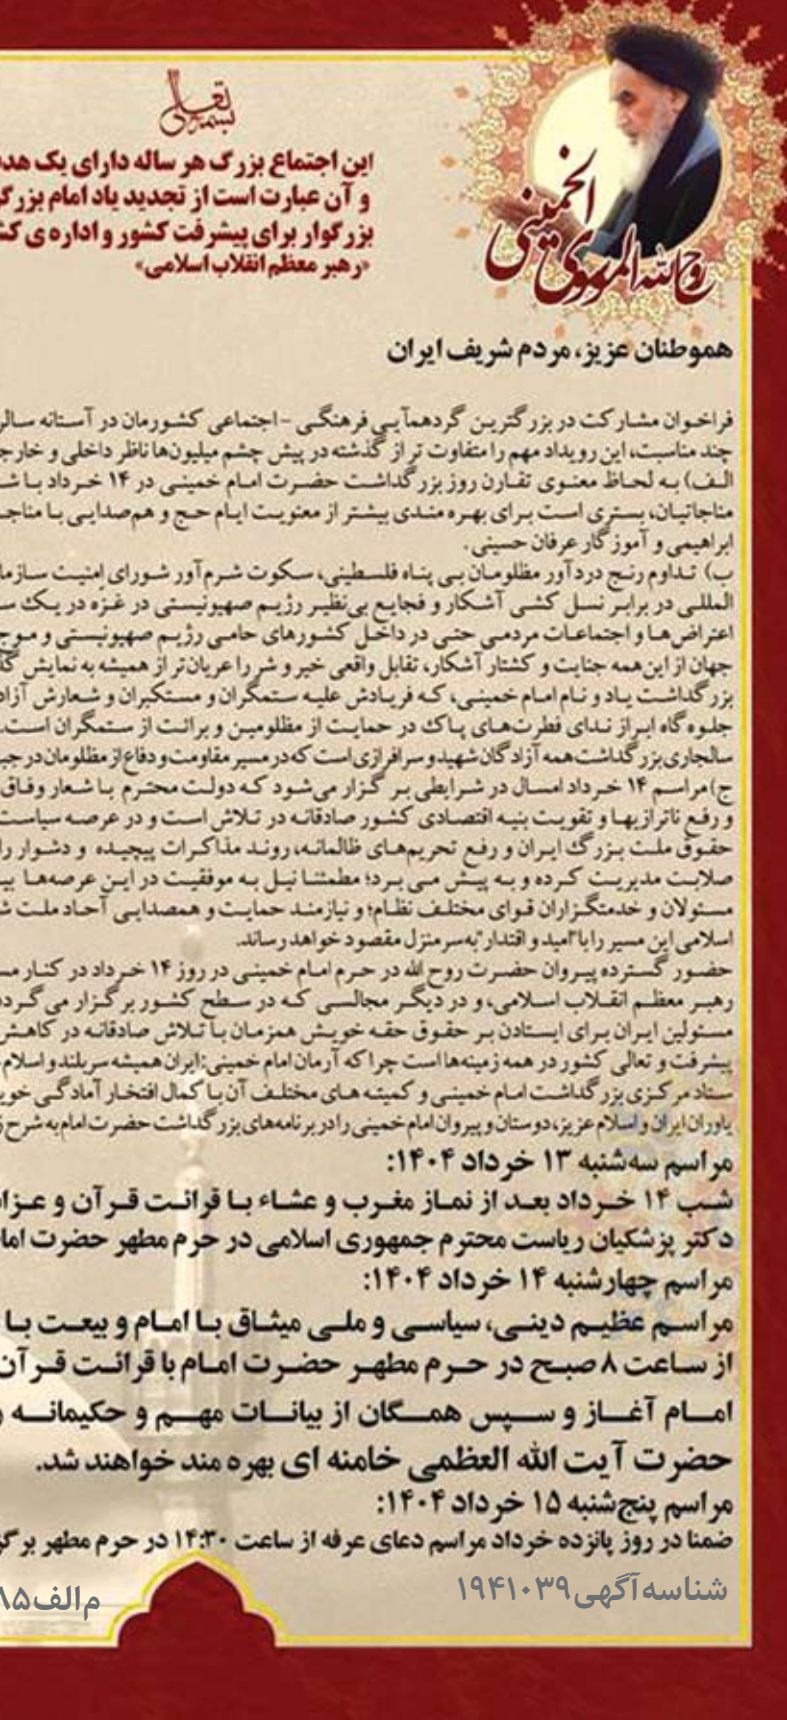 بسمه تعالی
این اجتماع بزرگ هر ساله دارای یک
و آن عبارت است از تجدید یاد امام
بزرگوار برای پیشرفت کشور و اداره ی
«رهبر معظم انقلاب اسلامی»
روح الله الموسوی الخمینی
هموطنان عزیز، مردم شریف ایران
فراخوان مشارکت در بزرگترین گردهمآیی فرهنگی - اجتماعی کشورمان در آستانه
چند مناسبت، این رویداد مهم را متفاوت تر از گذشته در پیش چشم میلیون‌ها ناظر داخلی و
الف) به لحاظ معنوی تقارن روز بزرگداشت حضرت امام خمینی در ۱۴ خرداد با
مناجاتیان، بستری است برای بهره مندی بیشتر از معنویت ایام حج و هم‌صدایی با
ابراهیمی و آموزگار عرفان حسینی.
ب) تداوم رنج دردآور مظلومان بی پناه فلسطینی، سکوت شرم‌آور شورای امنیت
المللی در برابر نسل کشی آشکار و فجایع بی‌نظیر رژیم صهیونیستی در غزه در یک
اعتراض‌ها و اجتماعات مردمی حتی در داخل کشورهای حامی رژیم صهیونیستی و
جهان از این همه جنایت و کشتار آشکار، تقابل واقعی خیر و شر را عریان‌تر از همیشه به نمایش
بزرگداشت یاد و نام امام خمینی، که فریادش علیه ستمگران و مستکبران و شعارش
جلوه گاه ابراز ندای فطرت‌های پاک در حمایت از مظلومین و برائت از ستمگران است.
سالجاری بزرگداشت همه آزادگان شهید و سرافرازی است که در مسیر مقاومت و دفاع از مظلومان در
ج) مراسم ۱۴ خرداد امسال در شرایطی برگزار می‌شود که دولت محترم با شعار وفاق
و رفع ناترازیها و تقویت بنیه اقتصادی کشور صادقانه در تلاش است و در عرصه سیاست
حقوق ملت بزرگ ایران و رفع تحریم‌های ظالمانه، روند مذاکرات پیچیده و دشوار را
صلابت مدیریت کرده و به پیش می برد؛ مطمئنا نیل به موفقیت در این عرصه‌ها
مسئولان و خدمتگزاران قوای مختلف نظام؛ و نیازمند حمایت و همصدایی آحاد ملت
اسلامی این مسیر را با "امید و اقتدار" به سر منزل مقصود خواهد رساند.
حضور گسترده پیروان حضرت روح الله در حرم امام خمینی در روز ۱۴ خرداد در کنار
رهبر معظم انقلاب اسلامی، و در دیگر مجالسی که در سطح کشور برگزار می
مسئولین ایران برای ایستادن بر حقوق حقه خویش همزمان با تلاش صادقانه در
پیشرفت و تعالی کشور در همه زمینه‌ها است چرا که آرمان امام خمینی: ایران همیشه سربلند و
ستاد مرکزی بزرگداشت امام خمینی و کمیته های مختلف آن با کمال افتخار آمادگی
یاوران ایران و اسلام عزیز، دوستان و پیروان امام خمینی را در برنامه‌های بزرگداشت حضرت امام به شرح
مراسم سه‌شنبه ۱۳ خرداد ۱۴۰۴:
شب ۱۴ خرداد بعد از نماز مغرب و عشاء با قرائت قرآن و
دکتر پزشکیان ریاست محترم جمهوری اسلامی در حرم مطهر حضرت
مراسم چهارشنبه ۱۴ خرداد ۱۴۰۴:
مراسم عظیم دینی، سیاسی و ملی میثاق با امام و بیعت با
از ساعت ۸ صبح در حرم مطهر حضرت امام با قرائت قرآن
امام آغاز و سپس همگان از بیانات مهم و حکیمانه
حضرت آیت الله العظمی خامنه ای بهره مند خواهند شد.
مراسم پنج‌شنبه ۱۵ خرداد ۱۴۰۴:
ضمنا در روز پانزده خرداد مراسم دعای عرفه از ساعت ۱۴:۳۰ در حرم مطهر
شناسه آگهی ۱۹۴۱۰۳۹
م الف